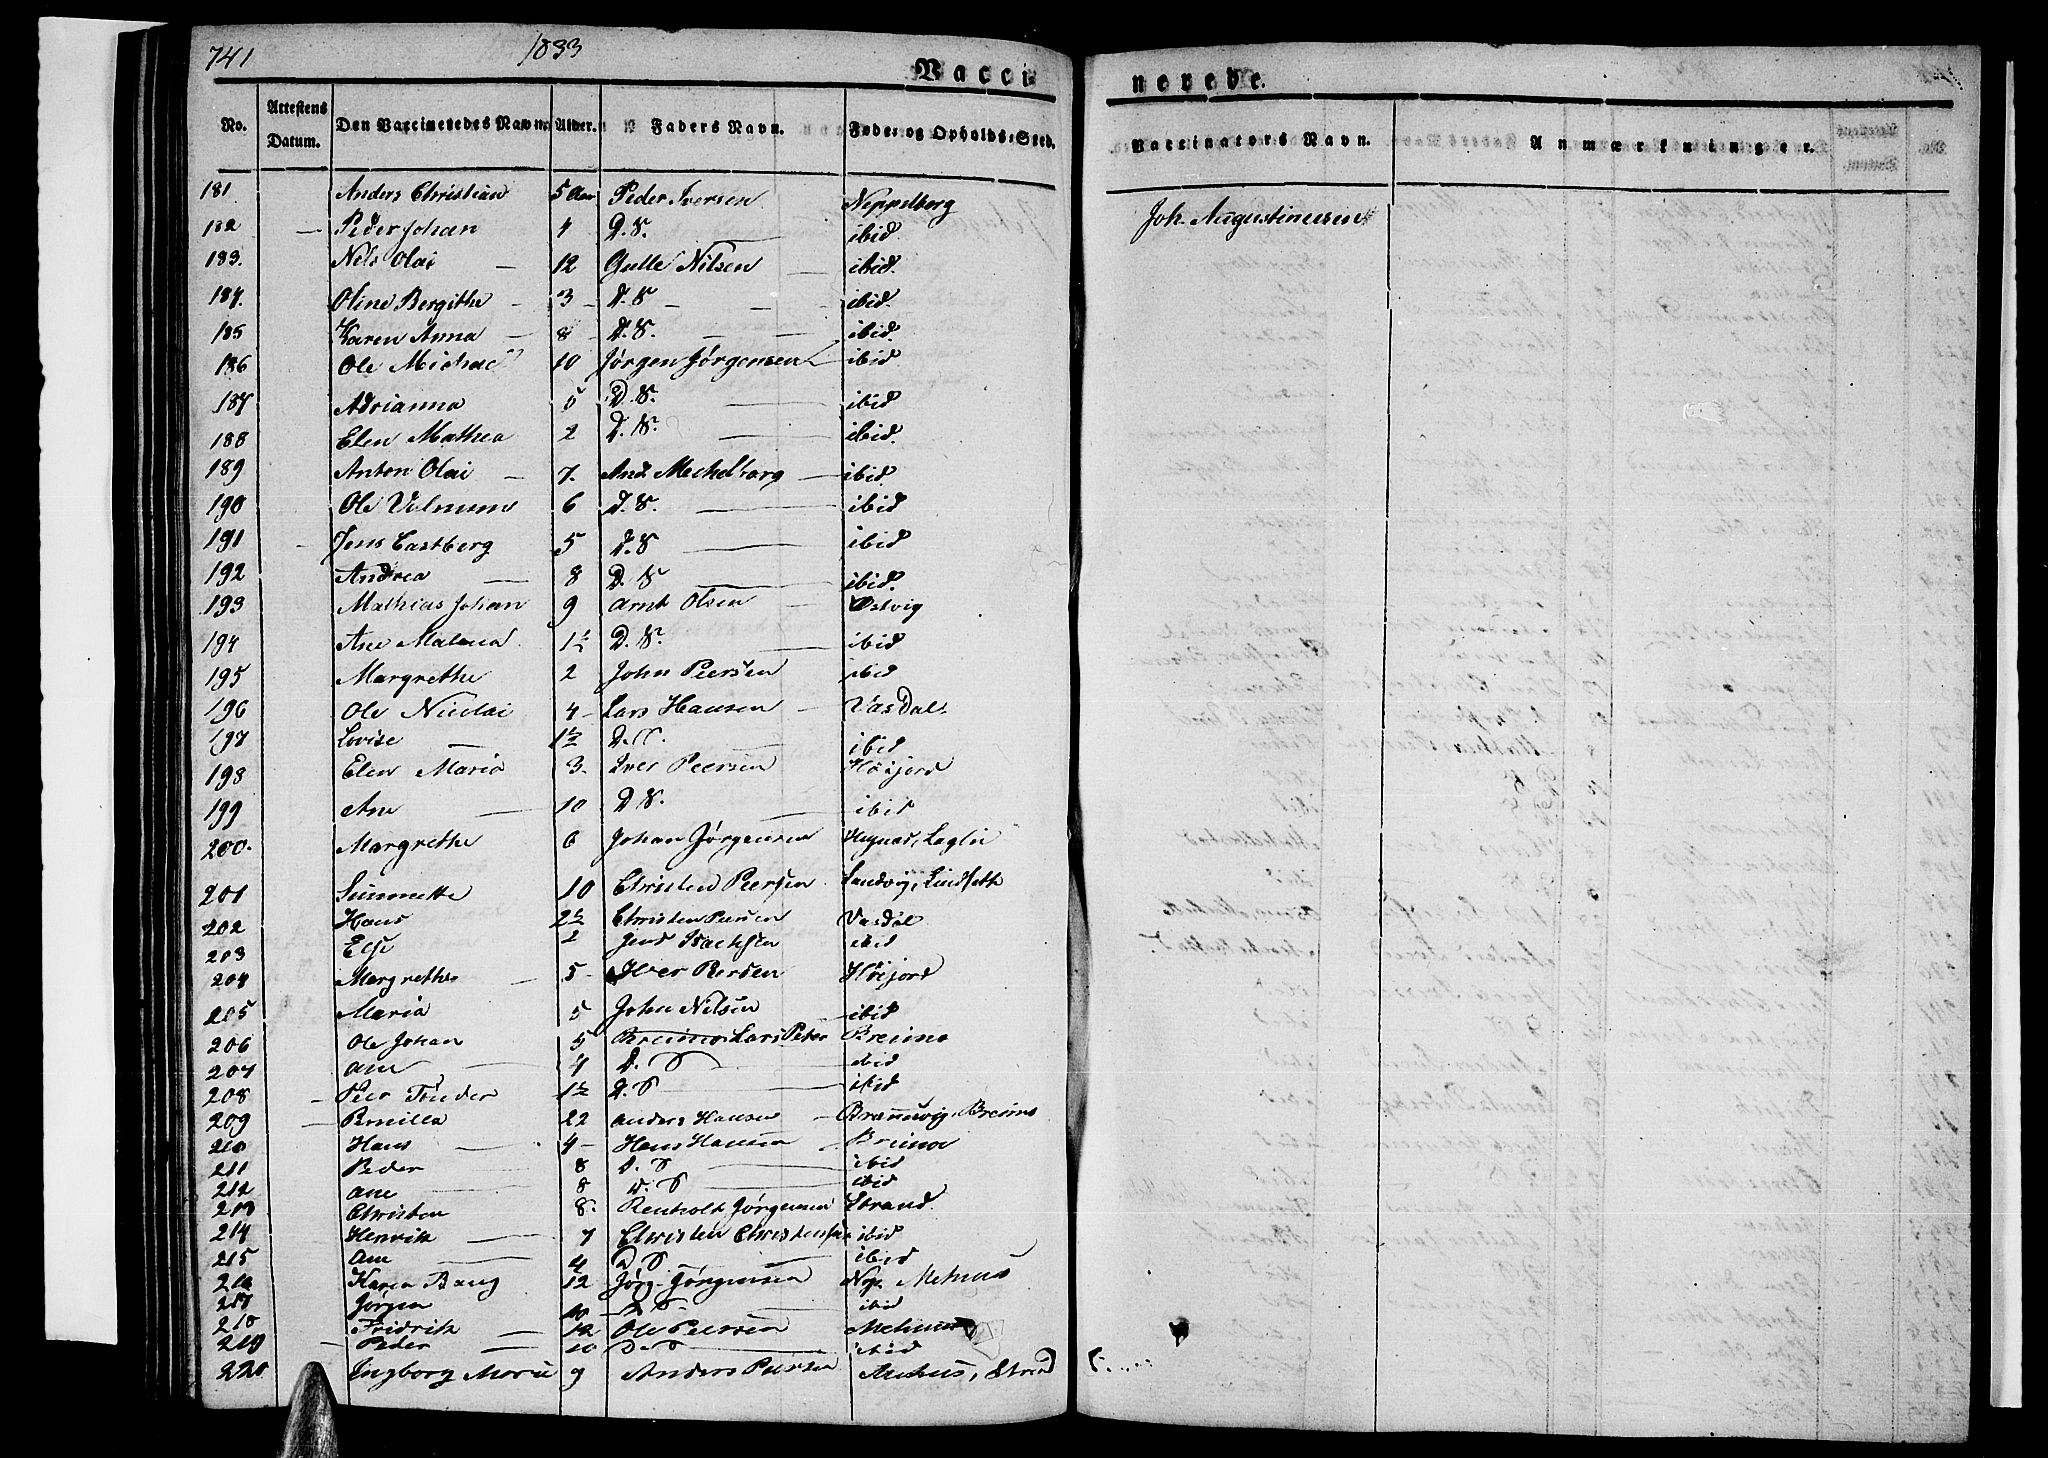 741 1833
Vacci nerede.
No. Attestens Datum. Den Vaccineredes Navn. Alder. Faders Navn. Føde- og Opholds-Sted. Vaccinators Navn. Anmærkninger.
181 Anders Christian 5 Aar Peder Iversen Neppelberg Joh. Augustinussen
182 Peder Johan 4 D. S. ibid.
183. Nils Olai 12 Gulle Nilsen ibid.
184. Oline Bergithe 3 D. S ibid.
185 Karen Anna 8 D. S. ibid.
186 Ole Michael 10 Jørgen Jørgensen ibid
187 Adrianna 5 D. S. ibid
188 Elen Mathea 2 D. S. ibid.
189 Anton Olai 7. And. ibid
190 Ole 6 D. S. ibid
191 Jens Castberg 5 D. S ibid
192 Andrea 8 D. S ibid.
193 Mathias Johan 9 Arnt Olsen Østvig
194 Ane Malena 1½ D. S. ibid
195 Margrethe 2 John Peersen ibid
196 Ole Nicolai 4 Lars Hansen Vasdal
197 Lovise 1½ D. S. ibid
198 Elen Maria 3. Iver Peersen Høijord
199 Ane 10 D. S. ibid
200. Margrethe 6 Johan Jørgensen
201 10 Christen Peersen Sandvig, Lindseth
202 Hans 2½ Christen Peersen Vasdal
203 Else 2 Jens Isachsen ibid
204 Margrethe 5 Iver Persen Høijord
205 Maria 5 John Nilsen ibid
206 Ole Johan 5 Lars Peter Breimo
207 Ane 4 D. S ibid
208 Peer Tønder 1½ D. S ibid
209 Pernilla 22 Anders Hansen Brennvig, Breimo
210 Hans 4 Hans Hansen Breimo
211 Peder 8 D. S ibid
212 Ane 8 D. S ibid
213 Christen 8. Reinholt Jørgensen Strand
214 Henrik 7 Christen Christensen ibid
215 Ane 4 D. S ibid
216 Karen Bang 12 Jørg. Jørgensen Nge. Mehuus
217 Jørgen 10 D. S. ibid
218 Fridrik 12 Ole Peersen Mehuus
219 Peder 10 D. S ibid
220 Ingborg Maria 9 Anders Peersen